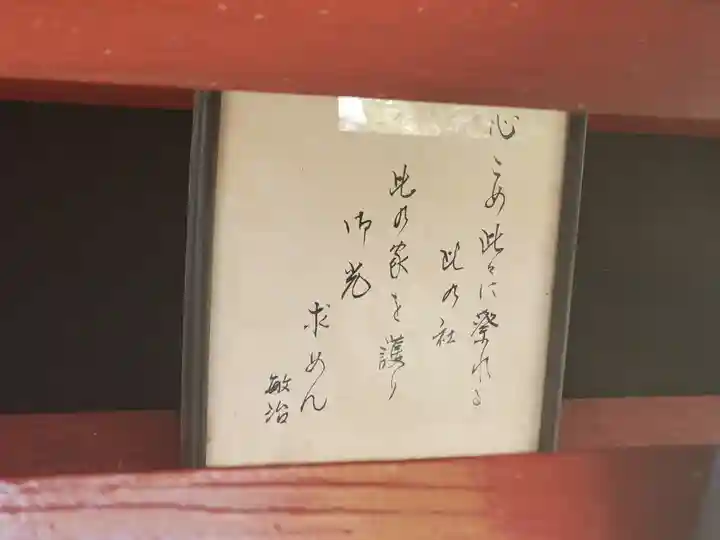 心こめ此々に祭れる
此の社
此の家を護り
御光
求めん
敏治